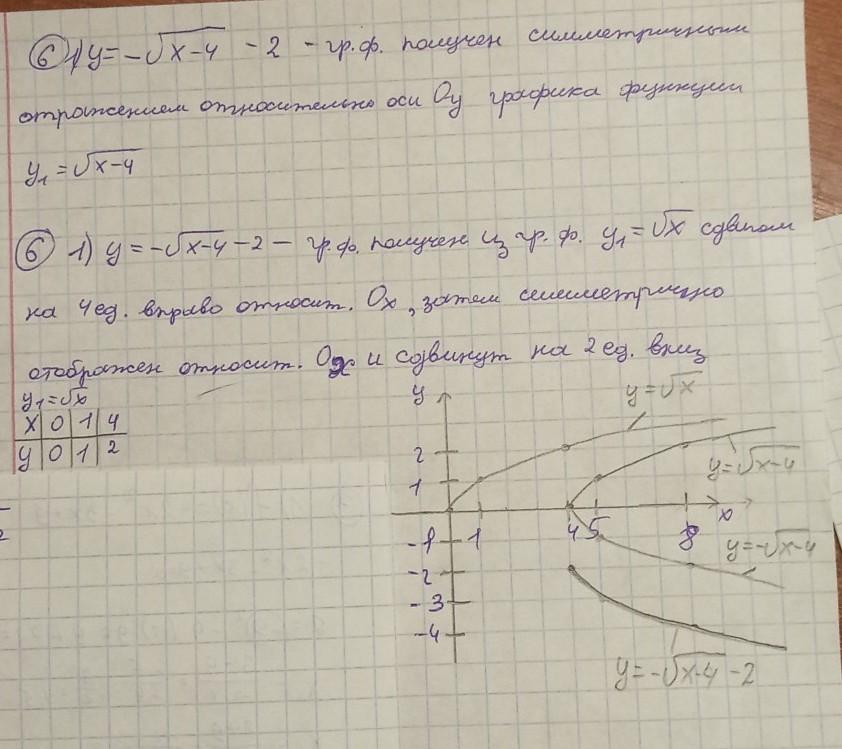 ⑥ 1) y = -√(x-4) - 2 - гр.ф. получен симметричным
отражением относительно оси Oy графика функции
y₁ = √(x-4)
⑥ 1) y = -√(x-4) - 2 - гр.ф. получен из гр.ф. y₁ = √x сдвигом
на 4 ед. вправо относит. Ox, затем симметрично
отображен относит. Ox и сдвинут на 2 ед. вниз
y₁ = √x
x 0 1 4
y 0 1 2
y
y = √x
2
y = √(x-4)
1
x
-1 1 4 5 8
y = -√(x-4)
-2
-3
-4
y = -√(x-4) - 2